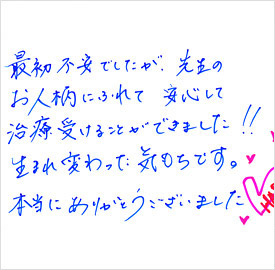 最初不安でしたが、先生の
お人柄にふれて 安心して
治療受けることができました!!
生まれ変わった気もちです。
本当にありがとうございました